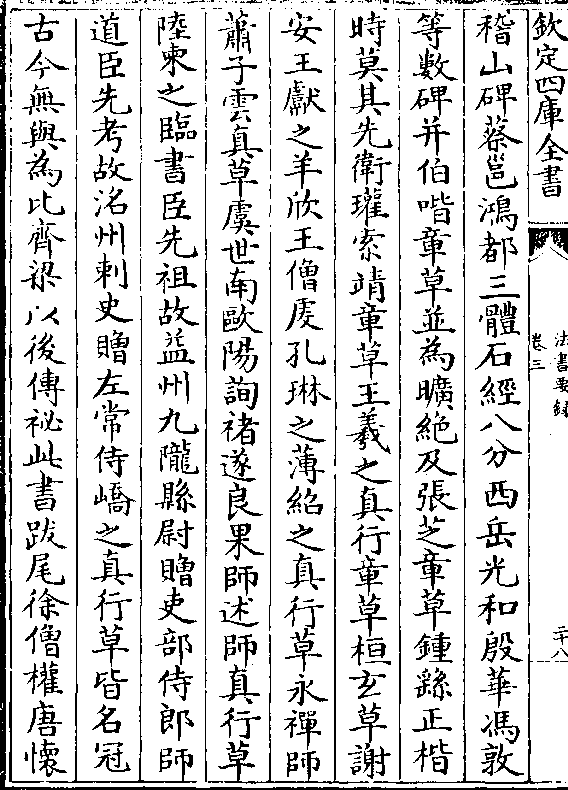 欽定四庫全書
法書要錄
卷三
二十八
稽山碑蔡邕鴻都三體石經八分西岳光和殷華馮敦
等數碑并伯喈章草並為曠絶及張芝章草鍾繇正楷
時莫其先衛瓘索靖章草王羲之真行章草桓玄草謝
安王獻之羊欣王僧䖍孔琳之薄紹之真行草永禪師
蕭子雲真草虞世南歐陽詢褚遂良果師述師真行草
陸柬之臨書臣先祖故益州九隴縣尉贈吏部侍郎師
道臣先考故洺州刺史贈左常侍嶠之真行草皆名冠
古今無與為比齊梁以後傳袐此書跋尾徐僧權唐懷